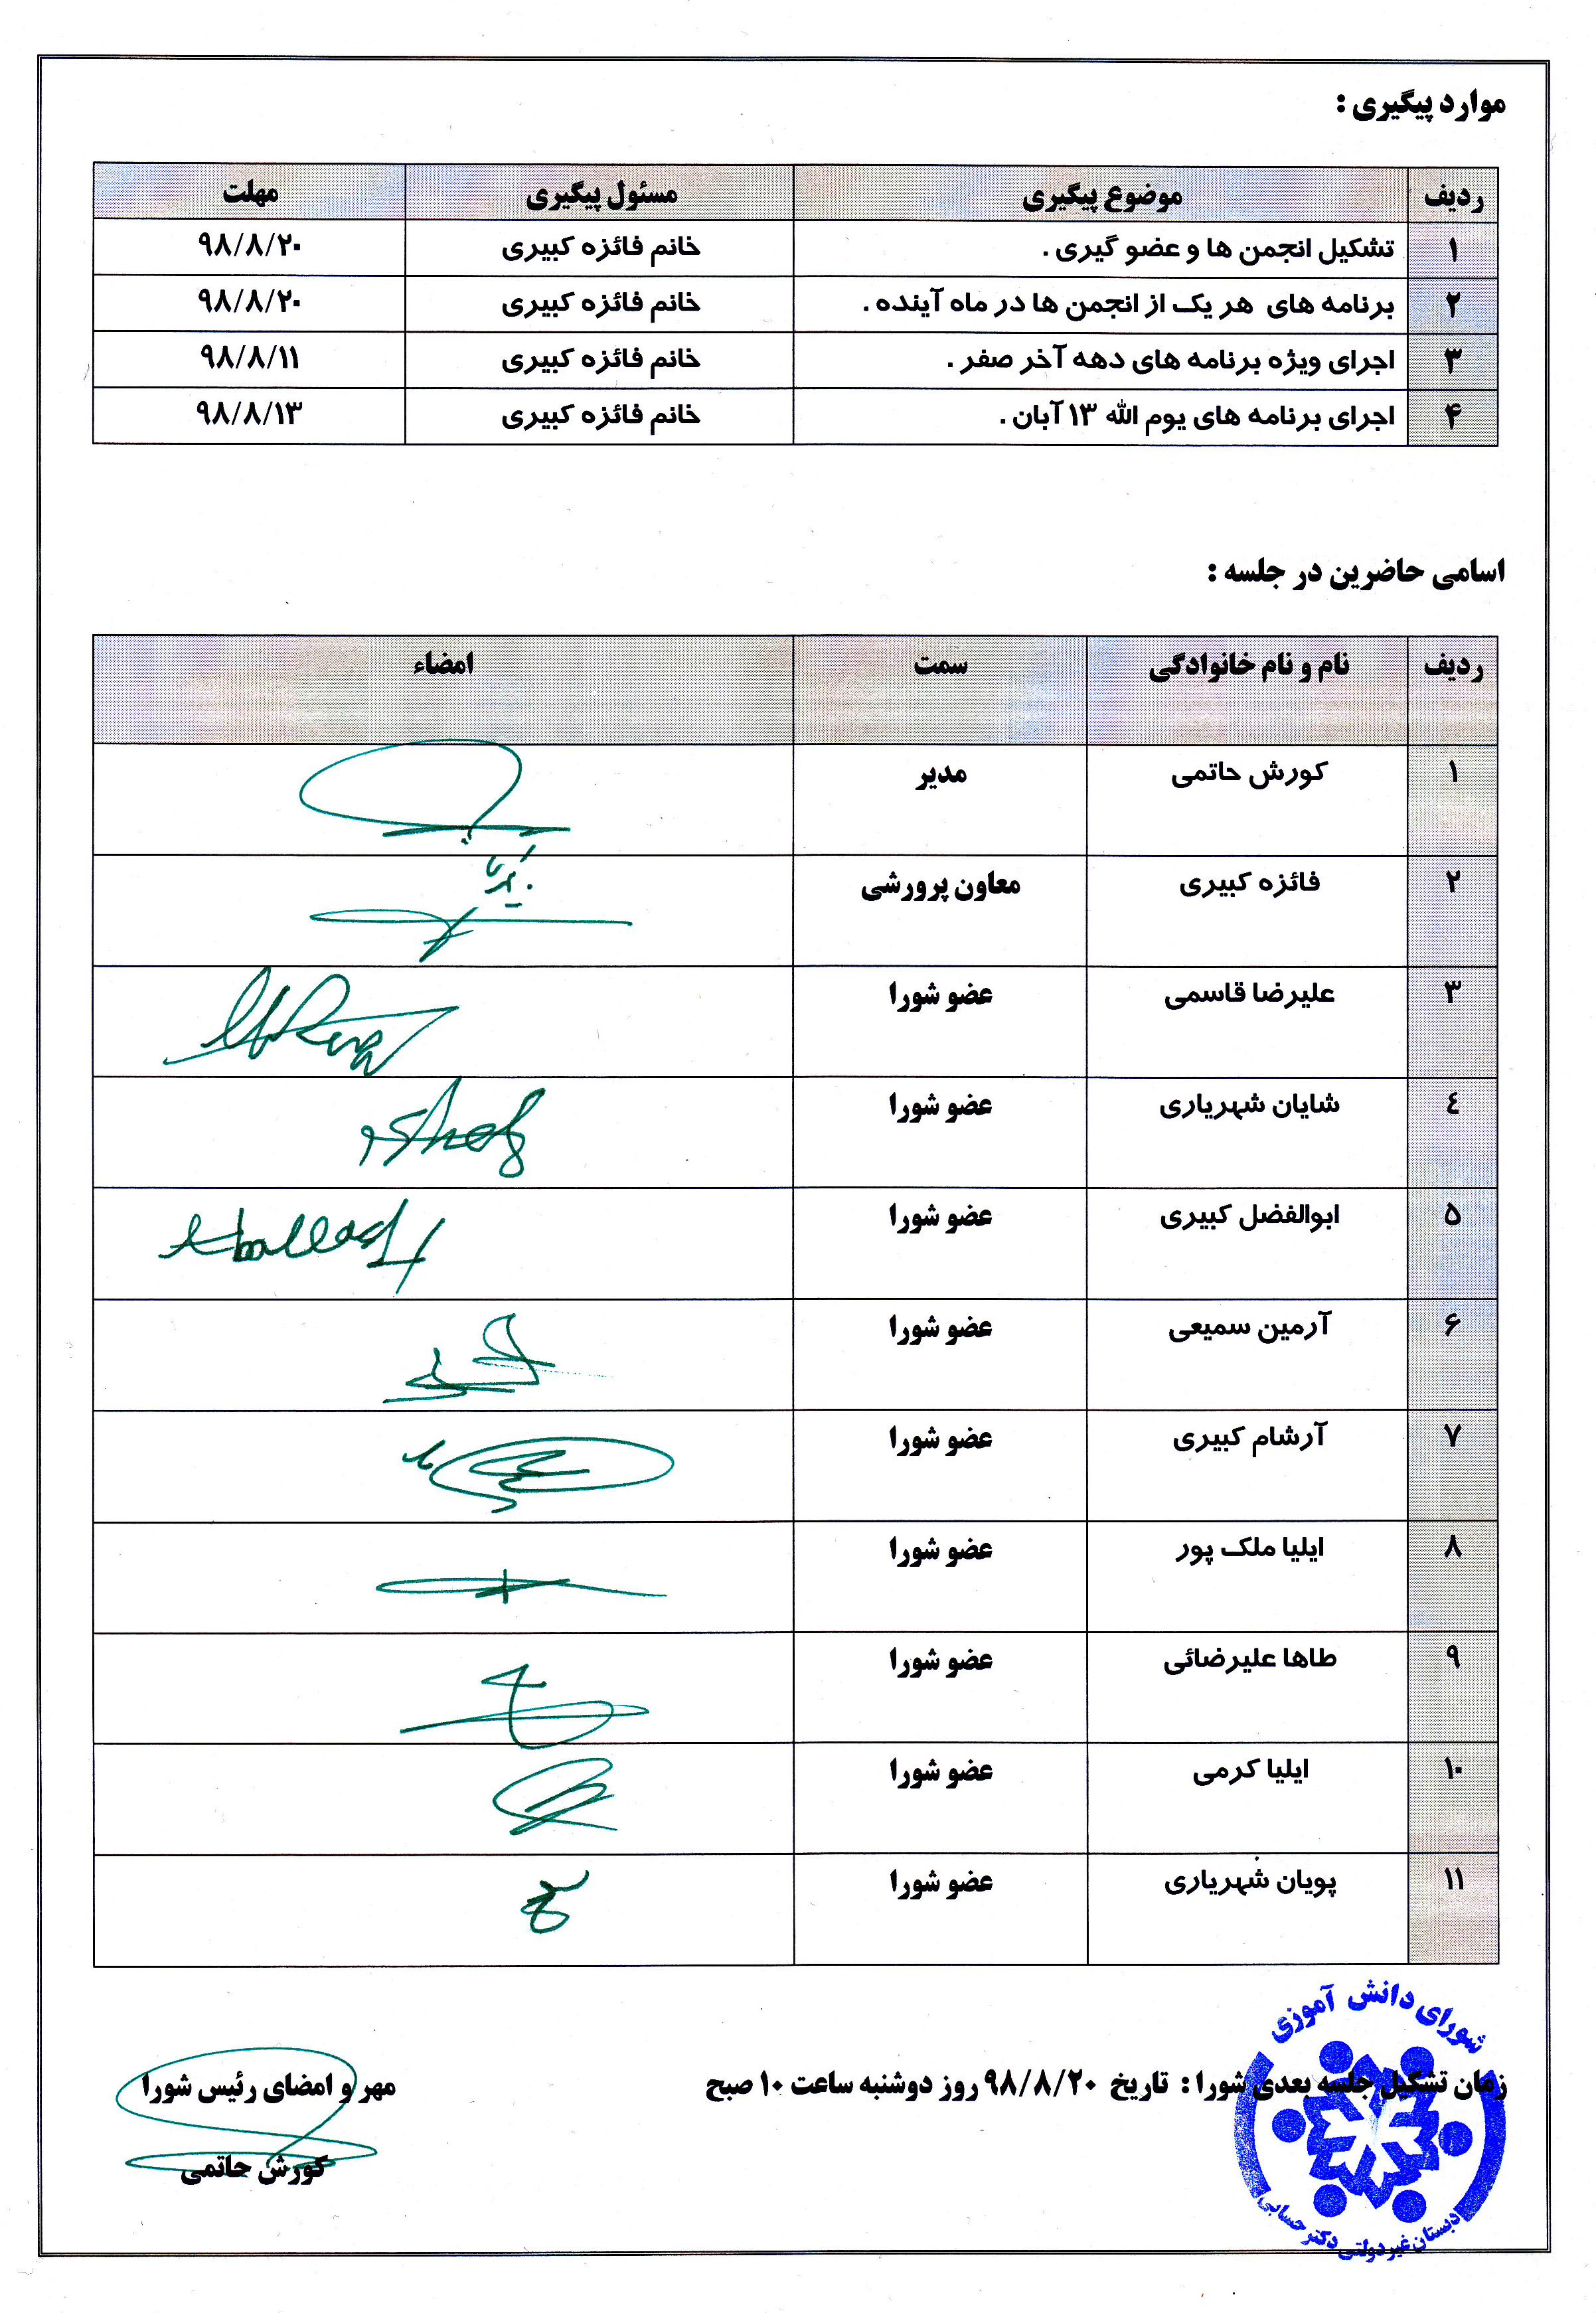 موارد پیگیری :
ردیف موضوع پیگیری مسئول پیگیری مهلت
۱ تشکیل انجمن ها و عضو گیری . خانم فائزه کبیری ۹۸/۸/۲۰
۲ برنامه های هر یک از انجمن ها در ماه آینده . خانم فائزه کبیری ۹۸/۸/۲۰
۳ اجرای ویژه برنامه های دهه آخر صفر . خانم فائزه کبیری ۹۸/۸/۱۱
۴ اجرای برنامه های یوم الله ۱۳ آبان . خانم فائزه کبیری ۹۸/۸/۱۳
اسامی حاضرین در جلسه :
ردیف نام و نام خانوادگی سمت امضاء
۱ کورش حاتمی مدیر
۲ فائزه کبیری معاون پرورشی
۳ علیرضا قاسمی عضو شورا
٤ شایان شهریاری عضو شورا
۵ ابوالفضل کبیری عضو شورا
۶ آرمین سمیعی عضو شورا
۷ آرشام کبیری عضو شورا
۸ ایلیا ملک پور عضو شورا
۹ طاها علیرضائی عضو شورا
۱۰ ایلیا کرمی عضو شورا
۱۱ پویان شهریاری عضو شورا
شورای دانش آموزی
زمان تشکیل جلسه بعدی شورا : تاریخ ۹۸/۸/۲۰ روز دوشنبه ساعت ۱۰ صبح
مهر و امضای رئیس شورا
کورش حاتمی
دبستان غیردولتی دکتر حسابی